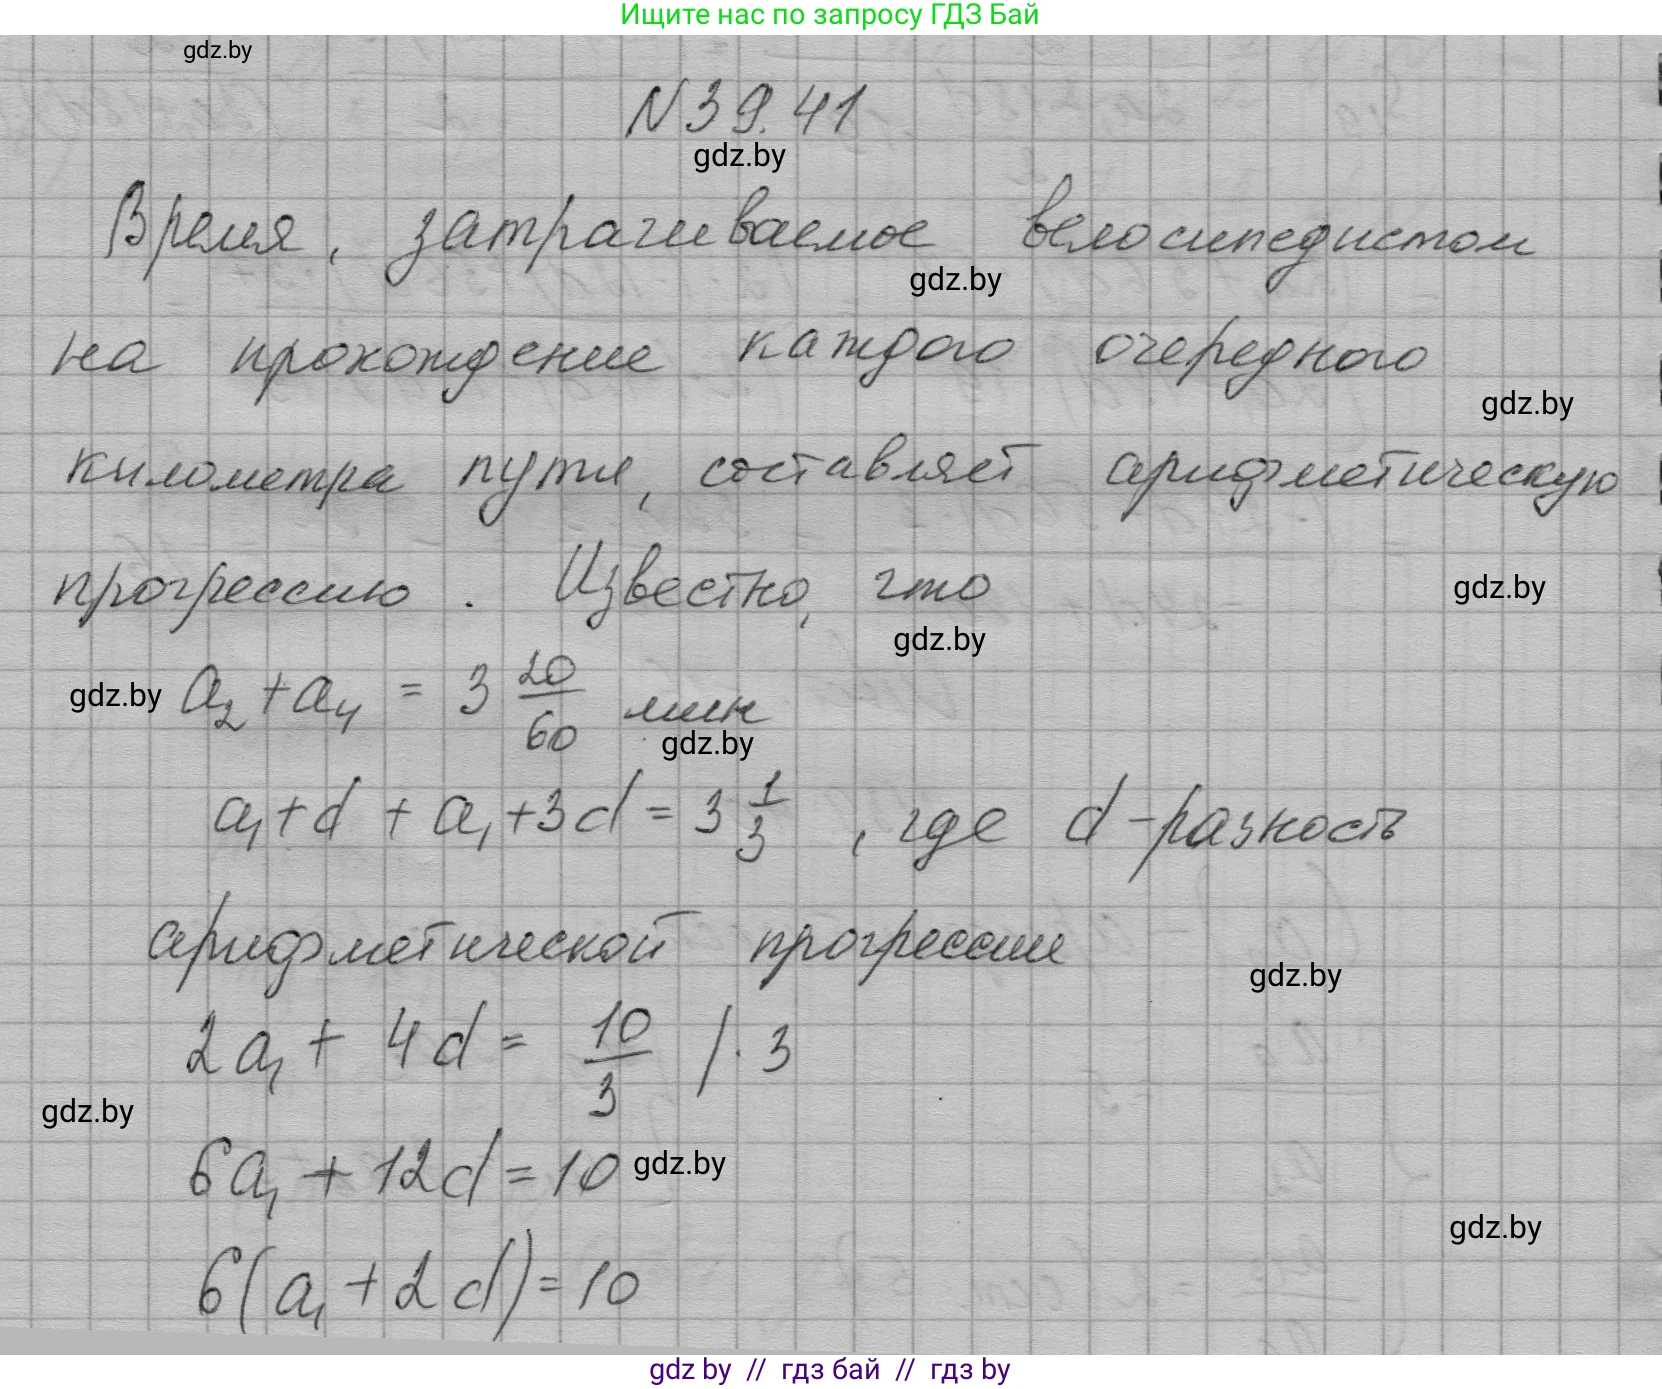 Ищите нас по запросу ГДЗ Бай
gdz.by
N 39.41
gdz.by
Время, затрачиваемое велосипедистом
gdz.by
на прохождение каждого очередного
gdz.by
километра пути, составляет арифметическую
прогрессию. Известно, что
gdz.by
gdz.by
gdz.by a₂ + a₄ = 3 20/60 мин
gdz.by
a₁ + d + a₁ + 3d = 3 1/3, где d - разность
арифметической прогрессии
gdz.by
2a₁ + 4d = 10/3 / · 3
gdz.by
6a₁ + 12d = 10 gdz.by
gdz.by
6(a₁ + 2d) = 10
gdz by // гдз бай // гдз by